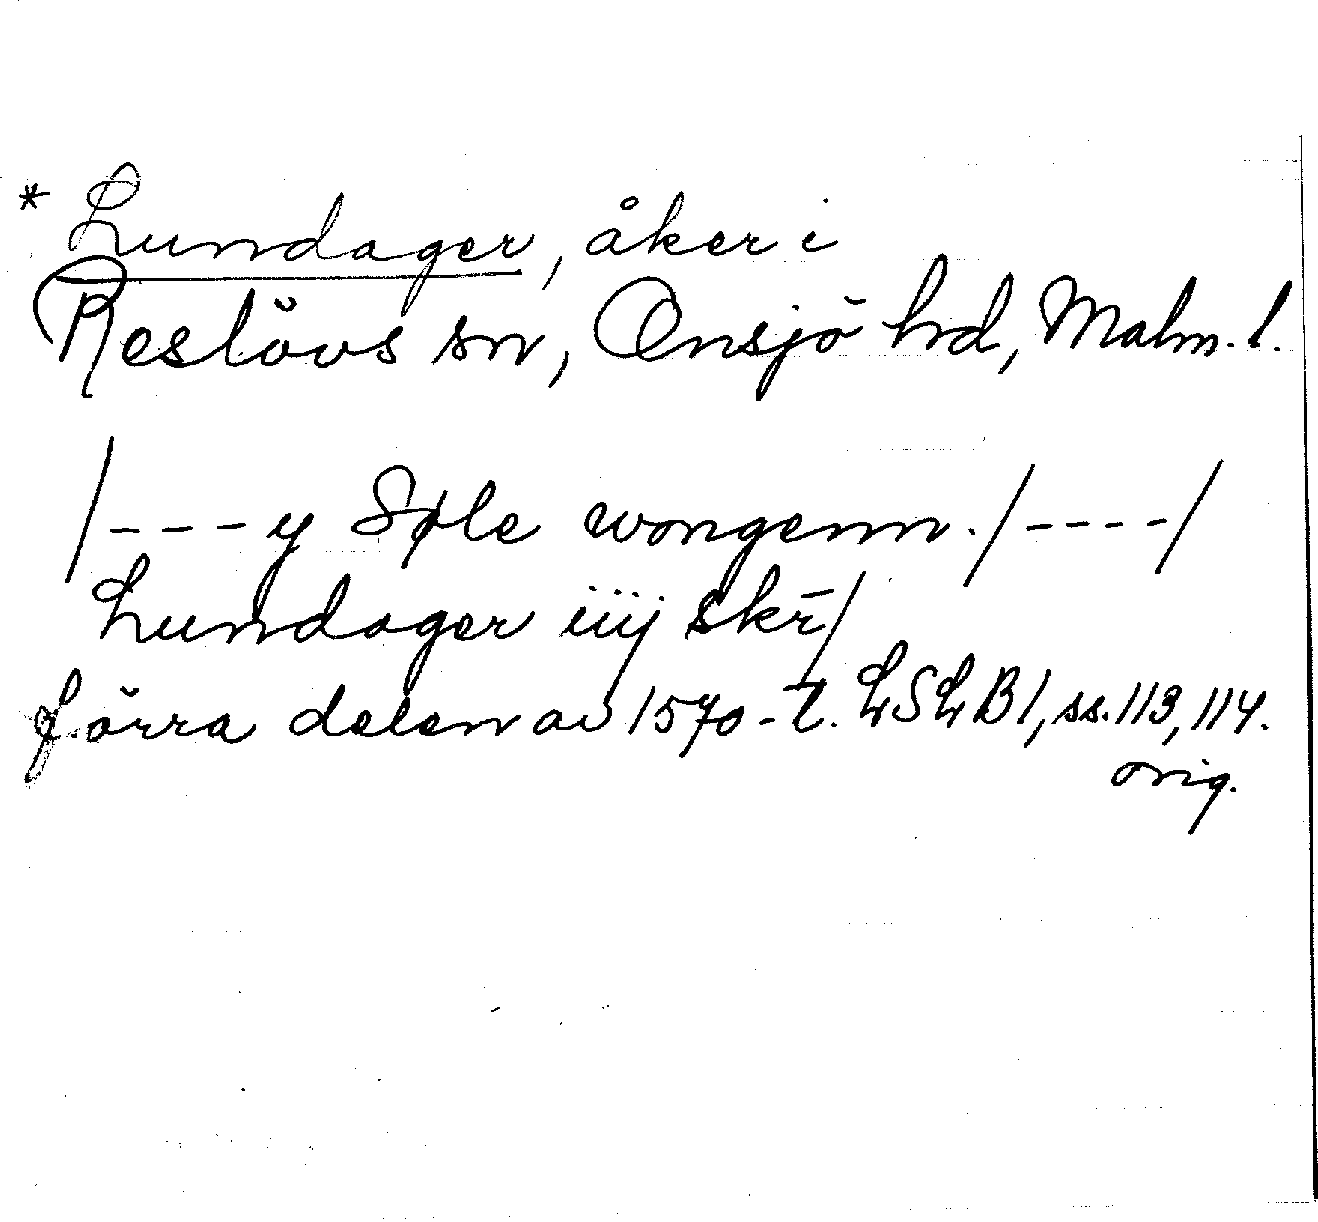 * Lundager, åker i
Reslövs sn, Onsjö hrd, Malm. l.
/---y Søle wongenn./----/
Lundager iiij skr̄/
förra delen av 1570-t. LSLB1, ss. 113, 114.
orig.